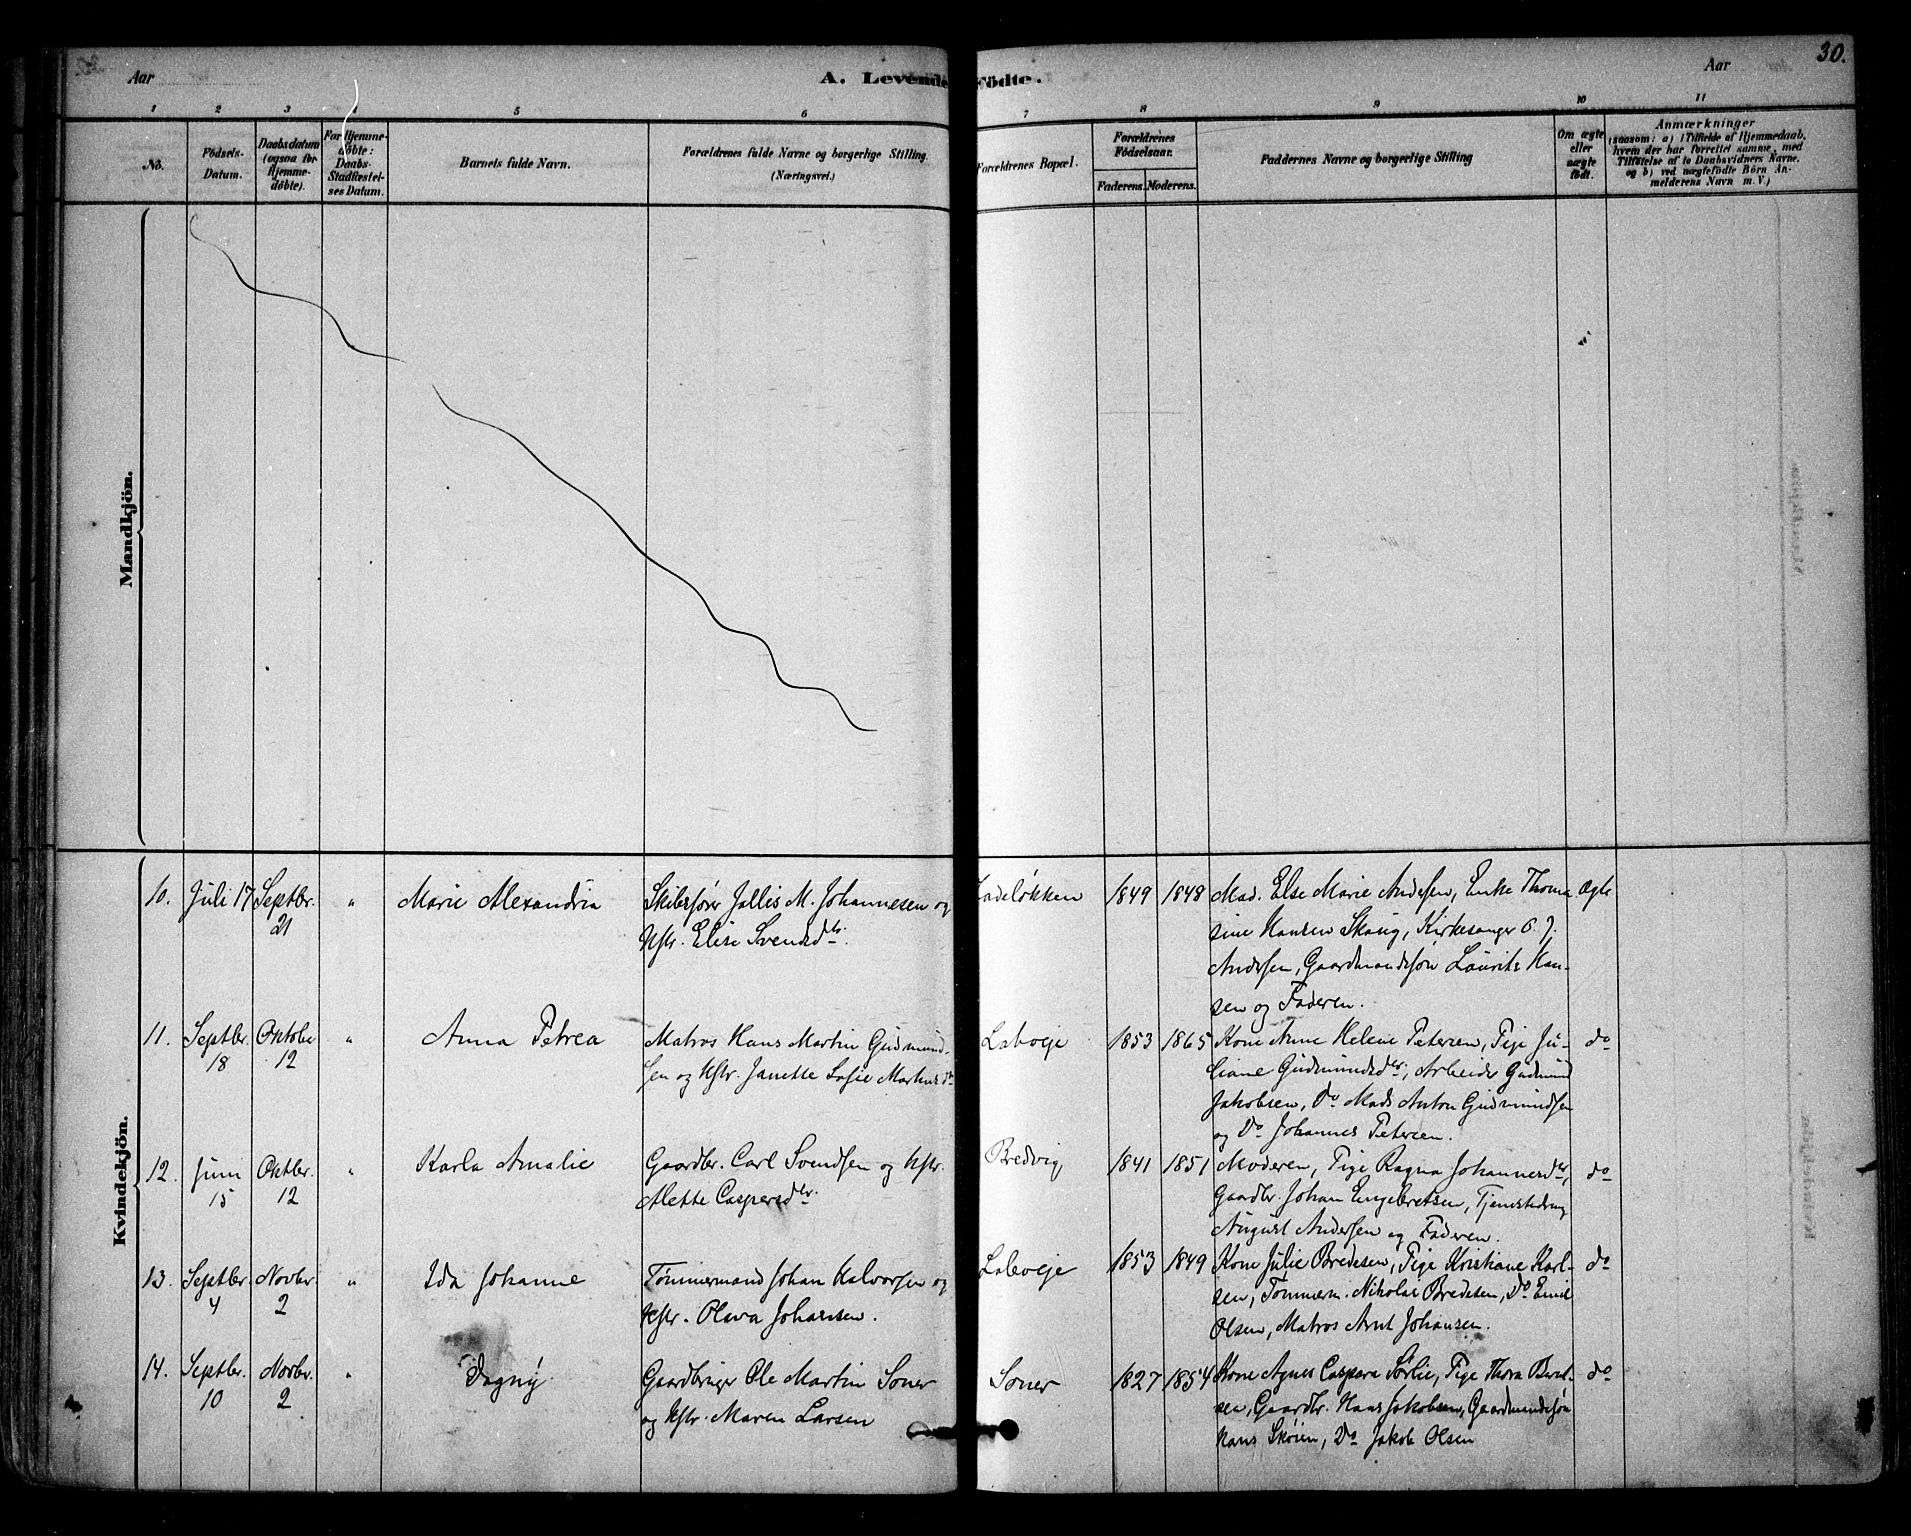 30.
Aar
A. Levende Födte.
Aar
1 2 3 4 5 6 7 8 9 10 11
No.
Födsels-
Datum.
Daabsdatum
(ogsaa for
Hjemme-
döbte).
For Hjemme-
döbte:
Daabs-
Stadfæstel-
ses Datum.
Barnets fulde Navn.
Forældrenes fulde Navne og borgerlige Stilling
(Næringsvei.)
Forældrenes Bopæl.
Forældrenes
Födselsaar.
Faderens. Moderens.
Faddernes Navne og borgerlige Stilling
Om ægte
eller
uægte
födt.
Anmærkninger
(saasom: a) i Tilfælde af Hjemmedaab,
hvem der har forrettet samme, med
Tilföielse af to Daabsvidners Navne.
og b) ved uægtefödte Börn An-
melderens Navn m. V.)
Mandkjön.
Kvindekjön.
10. Juli 17 Septbr.
21
"
Marie Alexandria
Skibsfører Jallis M. Johannesen og
Hstr. Elise Svendsdtr.
Ladeløkken
1849 1848
Mad. Else Marie Andersen, Enke Thoma
sine Hansen Skaug, Kirkesanger O. J.
Andersen, Gaardmandssøn Laurits Han-
sen og Faderen.
Ægte
11. Septbr.
18
Oktober
12
"
Anna Petrea
Matros Hans Martin Gudmund-
sen og Hstr. Janette Sofie Martinsdtr
Labveje
1853 1865
Kone Anne Helene Petersen, Pige Ju-
liane Gudmundsdtr, Arbeider Gudmund
Jakobsen, Do Mads Anton Gudmundsen
og Do Johannes Petersen.
do
12. Juni
15
Oktbr.
12
"
Karla Amalie
Gaardbr. Carl Svendsen og Hstr.
Alette Caspersdtr.
Bredvig
1841 1851
Moderen, Pige Ragna Johannesdtr,
Gaardbr. Johan Engebretsen, Tjenestedreng
August Andersen og Faderen.
do
13. Septbr
4
Novbr
2
"
Ida Johanne
Tømmermand Johan Halvorsen og
Hstr. Olava Johansen.
Labveje
1853 1849
Kone Julie Bredesen, Pige Kristiane Karl-
sen, Tømmerm. Nikolai Bredesen, Do Emil
Olsen, Matros Arnt Johansen.
do
14. Septbr.
10
Novbr.
2
"
Dagny
Gaardbruger Ole Martin Soner
og Hstr. Maren Larsen
Soner
1827 1854
Kone Agnes Caspara Sørlie, Pige Thora Berel-
sen, Gaardbr. Hans Jakobsen, Gaardmandssøn
Hans Skøien, Do Jakob Olsen
do